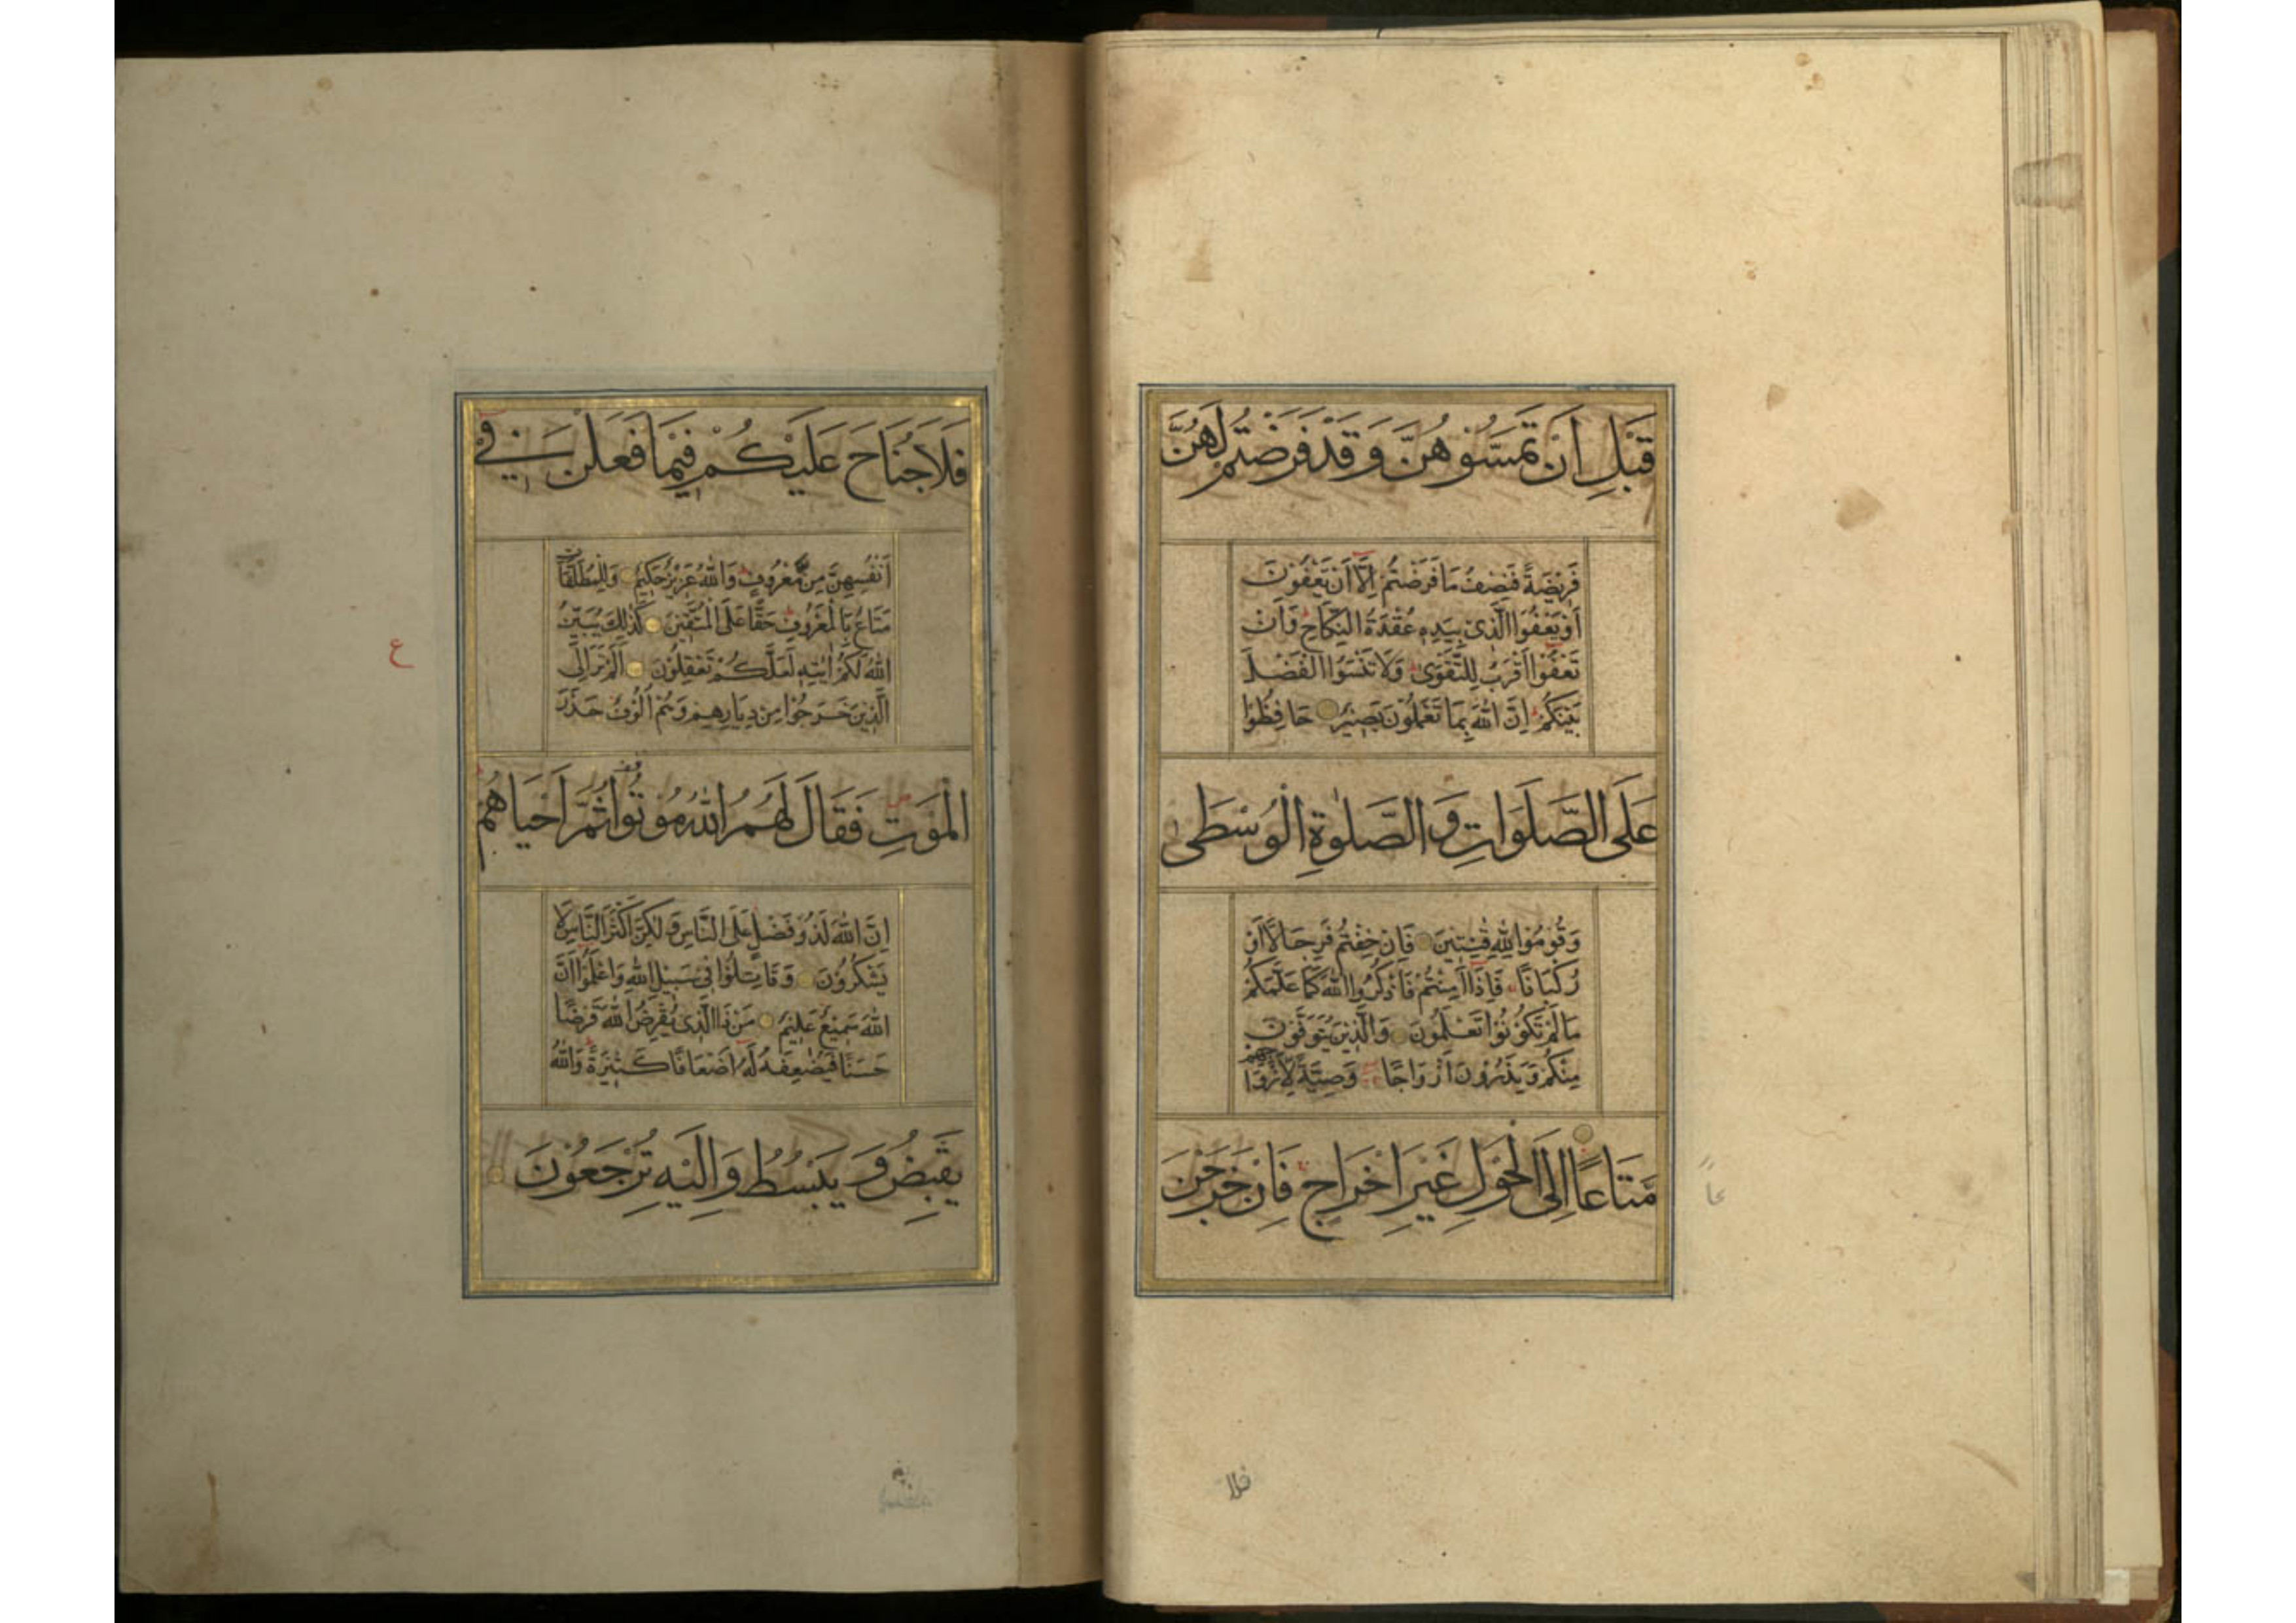 قَبْلِ اَنْ تَمَسُّوْهُنَّ وَقَدْ فَرَضْتُمْ لَهُنَّ
فَرِيْضَةً فَنِصْفُ مَا فَرَضْتُمْ اِلَّا اَنْ يَعْفُوْنَ
اَوْ يَعْفُوَا الَّذِىْ بِيَدِهٖ عُقْدَةُ النِّكَاحِ وَاَنْ
تَعْفُوْا اَقْرَبُ لِلتَّقْوٰى وَلَا تَنْسَوُا الْفَضْلَ
بَيْنَكُمْ اِنَّ اللهَ بِمَا تَعْمَلُوْنَ بَصِيْرٌ حَافِظُوْا
عَلَى الصَّلَوَاتِ وَالصَّلٰوةِ الْوُسْطٰى
وَقُوْمُوْا لِلّٰهِ قٰنِتِيْنَ فَاِنْ خِفْتُمْ فَرِجَالًا اَوْ
رُكْبَانًا فَاِذَا اَمِنْتُمْ فَاذْكُرُوا اللهَ كَمَا عَلَّمَكُمْ
مَا لَمْ تَكُوْنُوْا تَعْلَمُوْنَ وَالَّذِيْنَ يُتَوَفَّوْنَ
مِنْكُمْ وَيَذَرُوْنَ اَزْوَاجًا وَصِيَّةً لِاَزْوَاجِهِمْ
مَتَاعًا اِلَى الْحَوْلِ غَيْرَ اِخْرَاجٍ فَاِنْ خَرَجْنَ
عًا
فلا
فَلَا جُنَاحَ عَلَيْكُمْ فِيْمَا فَعَلْنَ فِىْ
اَنْفُسِهِنَّ مِنْ مَعْرُوْفٍ وَاللهُ عَزِيْزٌ حَكِيْمٌ وَلِلْمُطَلَّقَاتِ
مَتَاعٌ بِالْمَعْرُوْفِ حَقًّا عَلَى الْمُتَّقِيْنَ كَذٰلِكَ يُبَيِّنُ
اللهُ لَكُمْ اٰيٰتِهٖ لَعَلَّكُمْ تَعْقِلُوْنَ اَلَمْ تَرَ اِلَى
الَّذِيْنَ خَرَجُوْا مِنْ دِيَارِهِمْ وَهُمْ اُلُوْفٌ حَذَرَ
ع
الْمَوْتِ فَقَالَ لَهُمُ اللهُ مُوْتُوْا ثُمَّ اَحْيَاهُمْ
اِنَّ اللهَ لَذُوْ فَضْلٍ عَلَى النَّاسِ وَلٰكِنَّ اَكْثَرَ النَّاسِ لَا
يَشْكُرُوْنَ وَقَاتِلُوْا فِىْ سَبِيْلِ اللهِ وَاعْلَمُوْا اَنَّ
اللهَ سَمِيْعٌ عَلِيْمٌ مَنْ ذَا الَّذِىْ يُقْرِضُ اللهَ قَرْضًا
حَسَنًا فَيُضٰعِفَهُ لَهُ اَضْعَافًا كَثِيْرَةً وَاللهُ
يَقْبِضُ وَيَبْسُطُ وَاِلَيْهِ تُرْجَعُوْنَ